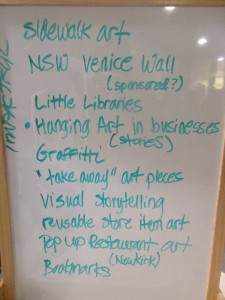 Sidewalk art
NSW Venice Wall
(sponsored?)
Little Libraries
• Hanging Art in businesses
(stories)
Graffitti
"take away" art pieces
visual storytelling
reusable store item art
Pop up Restaurant art
(Newkirk)
Bookmarks